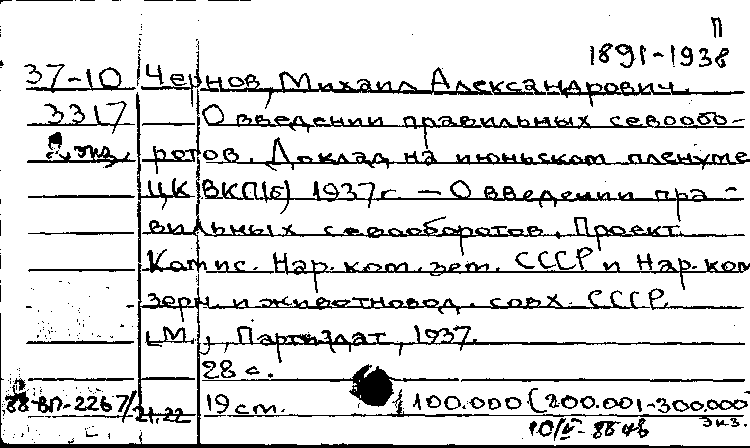 П
1891-1938
37-10 Чернов, Михаил Александрович.
3317 О введении правильных севообо-
2 экз. ротов. Доклад на июньском пленуме
ЦК ВКП(б) 1937 г. — О введении пра-
вильных севооборотов. Проект
Комис. Нар. ком. зем. СССР и Нар. ком
зерн. и животновод. совх. СССР.
[М.], Партиздат, 1937.
28 с.
88-ВП-2267/21.22 19 см. 100.000 (200.001-300.000
экз.